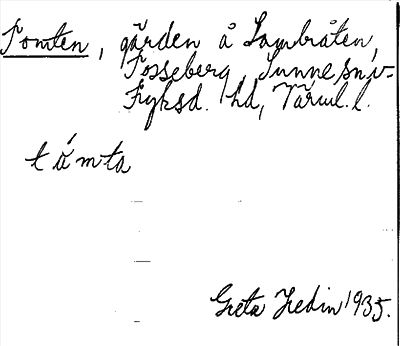 Tomten, gården å Lambråten,
Fosseberg, Sunne sn,
Fryksd. hd, Värml. l.
tómta
Greta Hedin 1935.